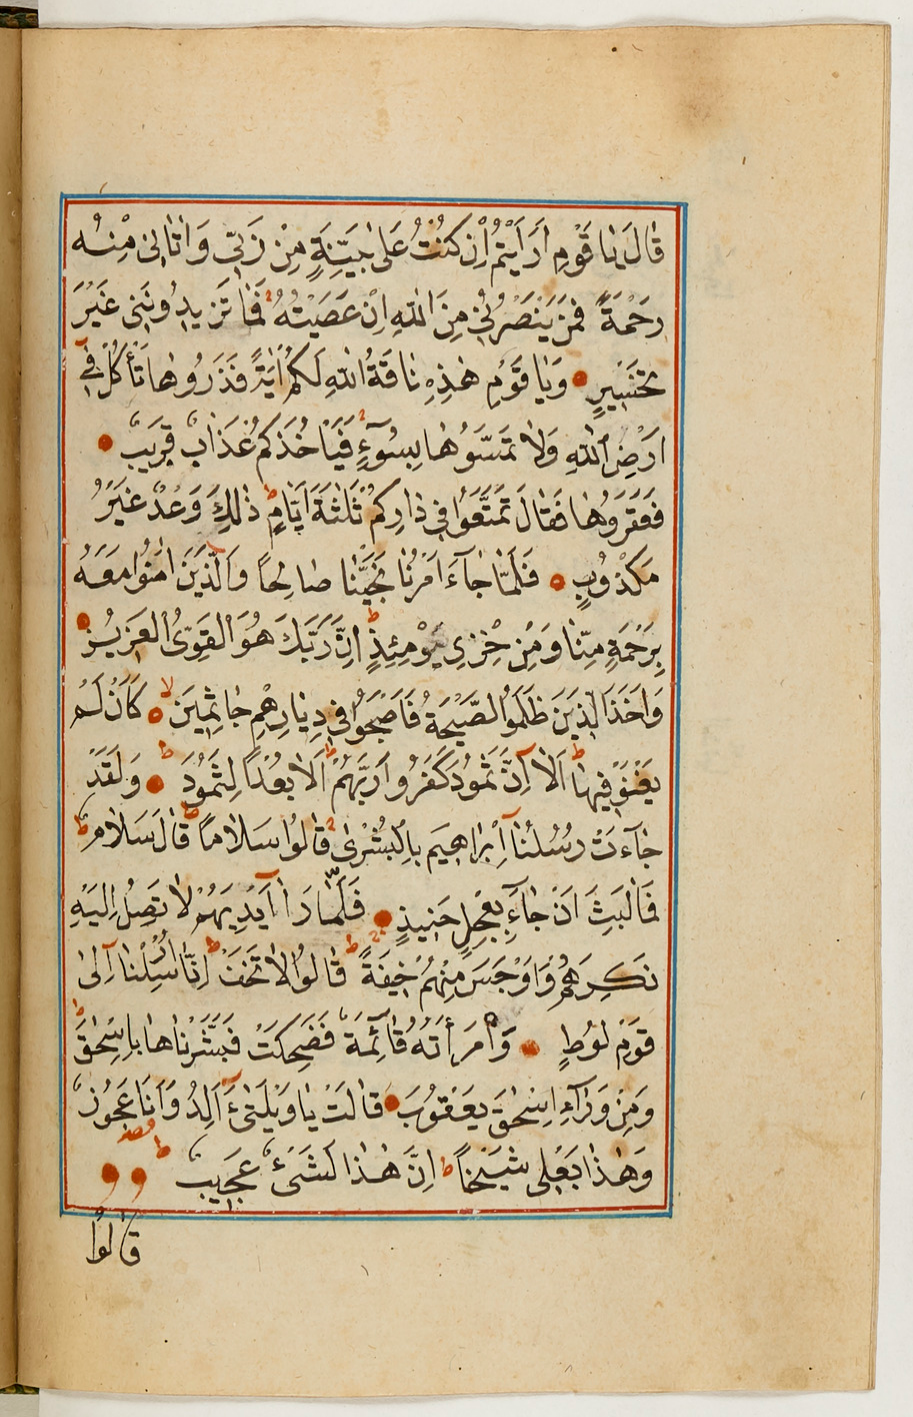 قَالَ يَا قَوْمِ اَرَاَيْتُمْ اِنْ كُنْتُ عَلٰى بَيِّنَةٍ مِنْ رَبّٖى وَاٰتَانٖى مِنْهُ
رَحْمَةً فَمَنْ يَنْصُرُنٖى مِنَ اللّٰهِ اِنْ عَصَيْتُهُ فَمَا تَزٖيدُونَنٖى غَيْرَ
تَخْسٖيرٍ وَيَا قَوْمِ هٰذِهٖ نَاقَةُ اللّٰهِ لَكُمْ اٰيَةً فَذَرُوهَا تَأْكُلْ فٖى
اَرْضِ اللّٰهِ وَلَا تَمَسُّوهَا بِسُوٓءٍ فَيَأْخُذَكُمْ عَذَابٌ قَرٖيبٌ
فَعَقَرُوهَا فَقَالَ تَمَتَّعُوا فٖى دَارِكُمْ ثَلٰثَةَ اَيَّامٍ ط ذٰلِكَ وَعْدٌ غَيْرُ
مَكْذُوبٍ فَلَمَّا جَآءَ اَمْرُنَا نَجَّيْنَا صَالِحًا وَالَّذٖينَ اٰمَنُوا مَعَهُ
بِرَحْمَةٍ مِنَّا وَمِنْ خِزْىِ يَوْمِئِذٍ ط اِنَّ رَبَّكَ هُوَ الْقَوِىُّ الْعَزٖيزُ
وَاَخَذَ الَّذٖينَ ظَلَمُوا الصَّيْحَةُ فَاَصْبَحُوا فٖى دِيَارِهِمْ جَاثِمٖينَ لا كَاَنْ لَمْ
يَغْنَوْا فٖيهَا ط اَلَٓا اِنَّ ثَمُودَ كَفَرُوا رَبَّهُمْ ط اَلَا بُعْدًا لِثَمُودَ ط وَلَقَدْ
جَآءَتْ رُسُلُنَٓا اِبْرَاهٖيمَ بِالْبُشْرٰى قَالُوا سَلَامًا ط قَالَ سَلَامٌ ط
فَمَا لَبِثَ اَنْ جَآءَ بِعِجْلٍ حَنٖيذٍ فَلَمَّا رَآٰ اَيْدِيَهُمْ لَا تَصِلُ اِلَيْهِ
نَكِرَهُمْ وَاَوْجَسَ مِنْهُمْ خٖيفَةً ط قَالُوا لَا تَخَفْ ط اِنَّٓا اُرْسِلْنَٓا اِلٰى
قَوْمِ لُوطٍ وَامْرَأَتُهُ قَٓائِمَةٌ فَضَحِكَتْ فَبَشَّرْنَاهَا بِاِسْحٰقَ
وَمِنْ وَرَٓاءِ اِسْحٰقَ يَعْقُوبَ قَالَتْ يَا وَيْلَتٰٓىءَ اَلِدُ وَاَنَا عَجُوزٌ
وَهٰذَا بَعْلٖى شَيْخًا ط اِنَّ هٰذَا لَشَىْءٌ عَجٖيبٌ ط
قَالُوا